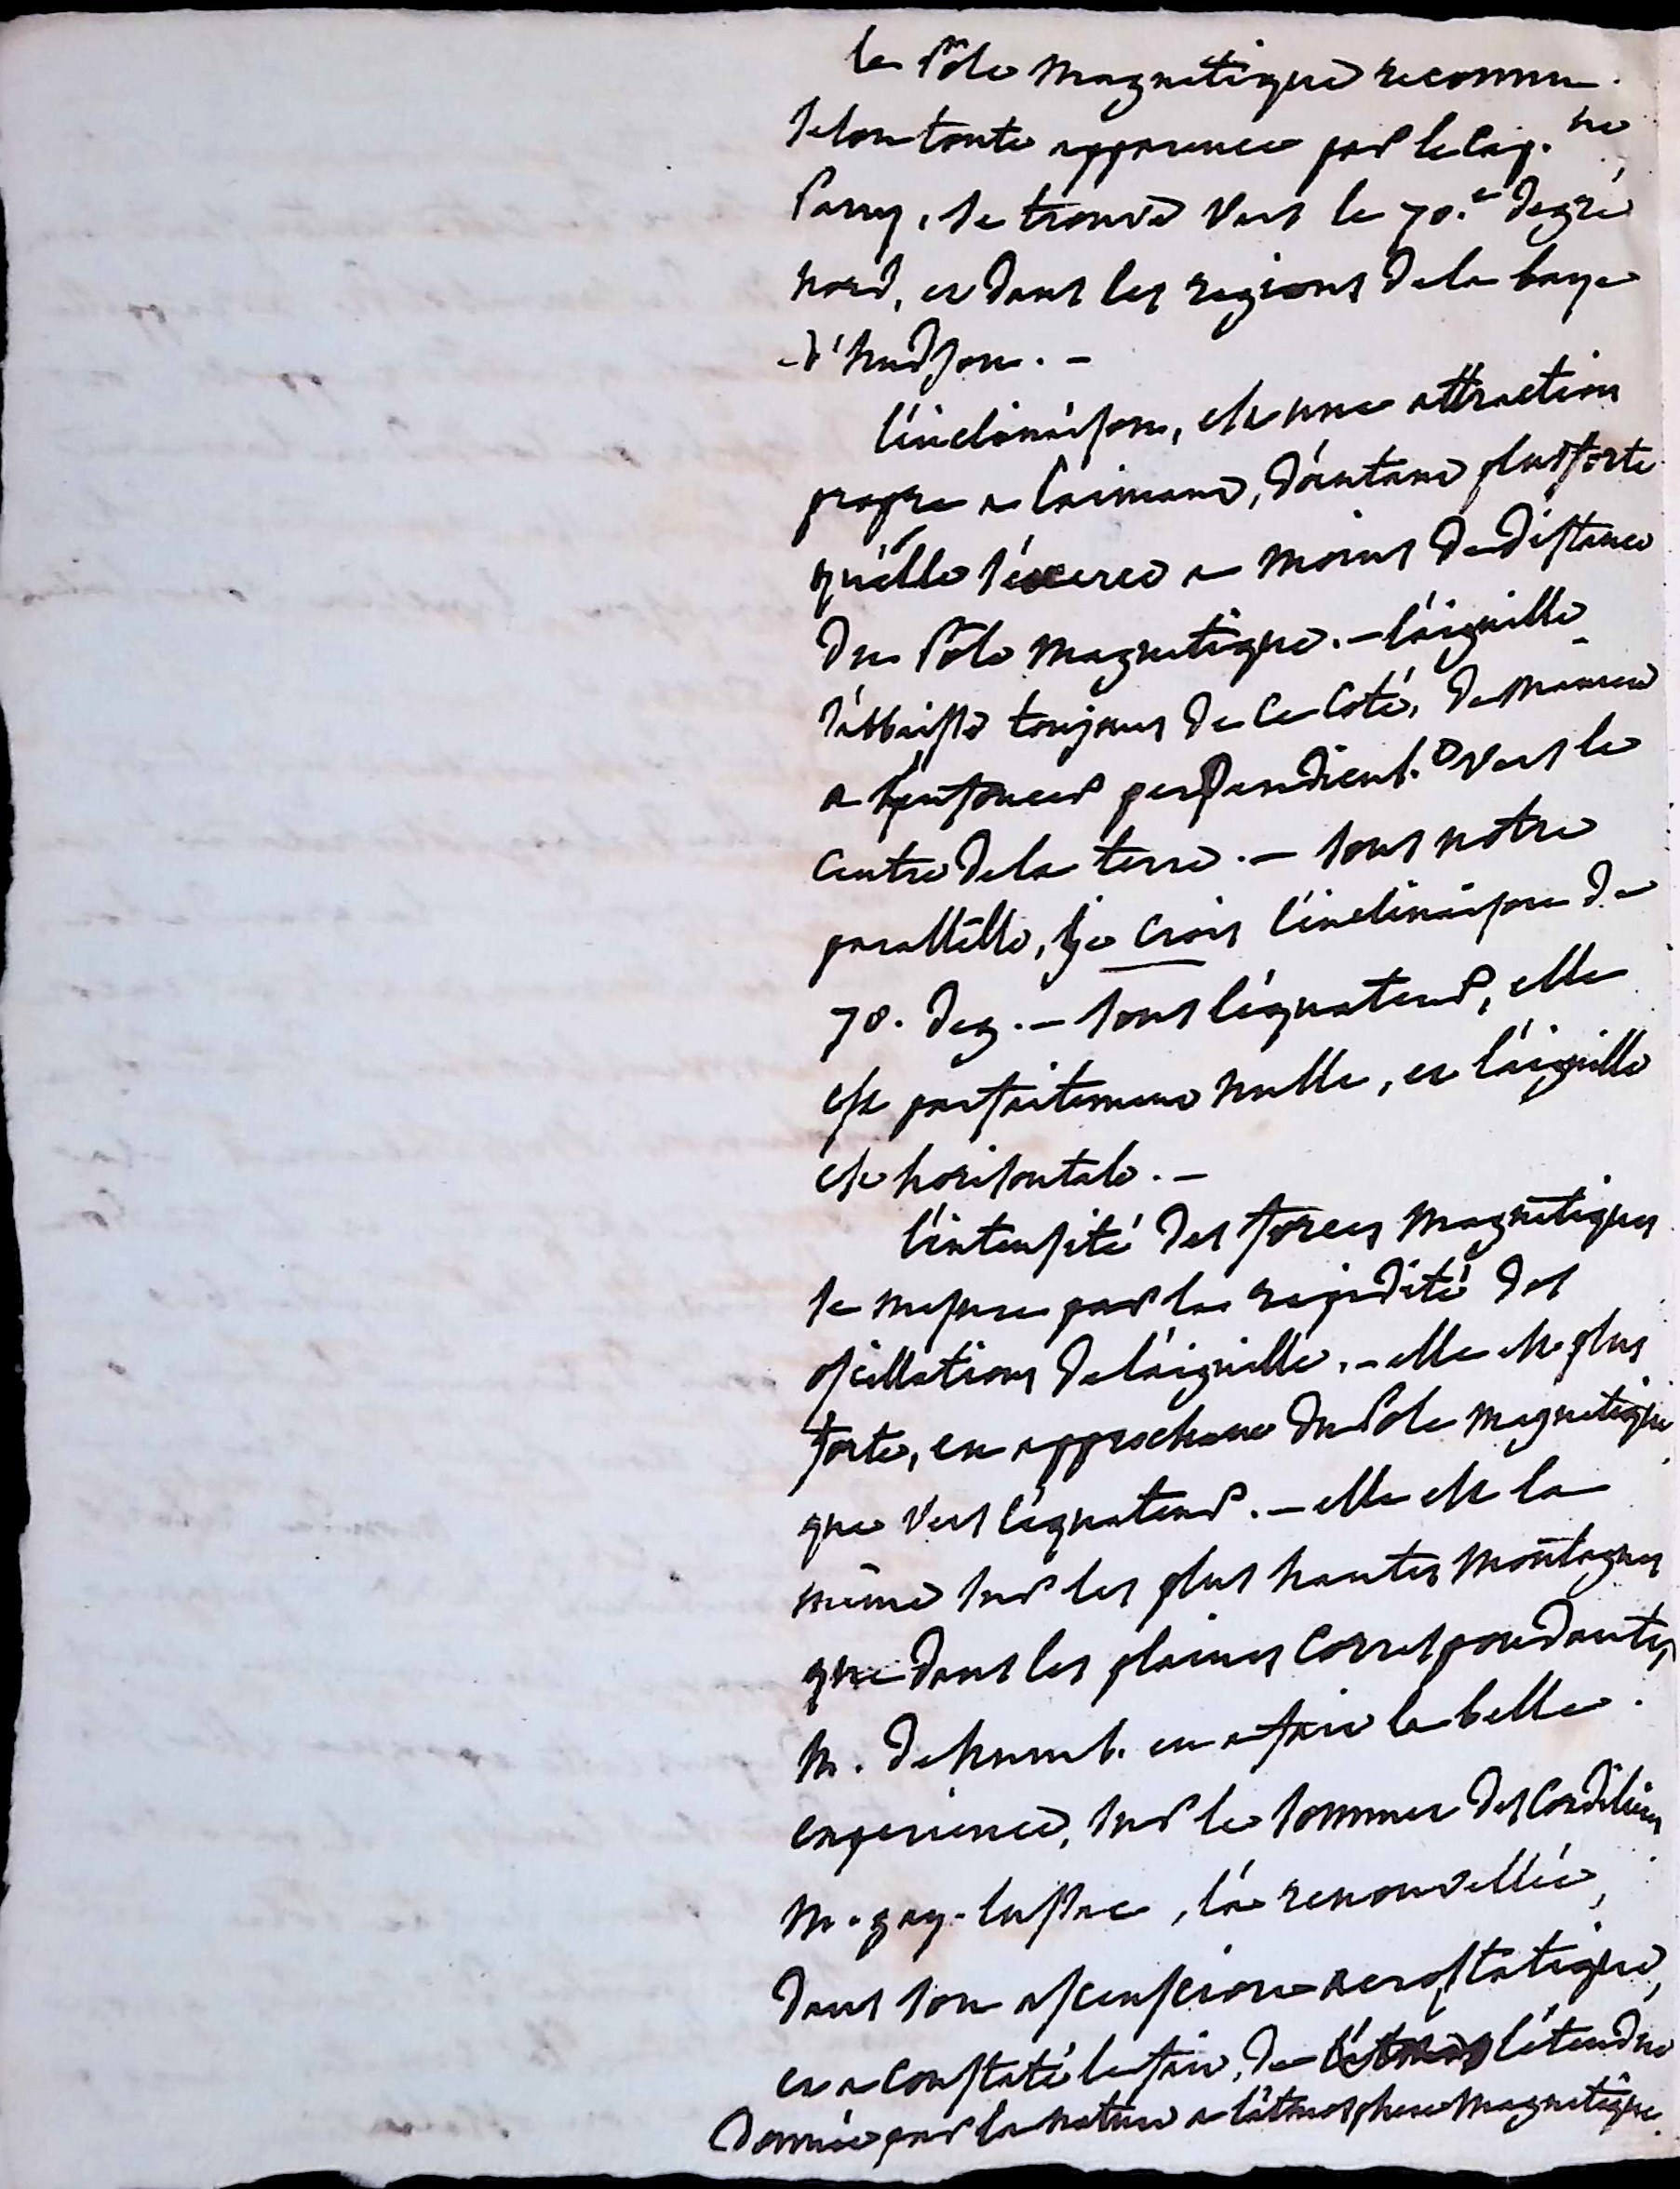 le Pôle magnétique reconnu
selon toute apparence par le Cap.ne
Parry, se trouve vers le 70.e degré
nord, et dans les regions de la baye
d'hudson. -
l'inclinaison, est une attraction
propre a l'aimant, d'autant plus forte
qu'elle s'exerce a moins de distance
du Pôle magnetique. - l'aiguille
s'abbaisse toujours de ce coté, de maniere
a s'enfoncer perpendicul.t vers le
centre de la terre. - sous notre
parallèlle, je crois l'inclinaison de
70. deg. - sous l'équateur, elle
est parfaitement nulle, et l'aiguille
est horisontale. -
l'intensité des forces magnétiques
se mesure par la rapidité des
oscillations de l'aiguille. - elle est plus
forte, en approchant du Pole magnetique
que vers l'équateur. - elle est la
même sur les plus hautes montagnes
que dans les plaines correspondantes
M. de humb. en a fait la belle
experience, sur le sommet des Cordilieres
M. gay-lussac, l'a renouvellée,
dans son ascension aerostatique,
et a constaté le fait, de l'étendue
donnée par la nature a l'atmosphere magnetique.